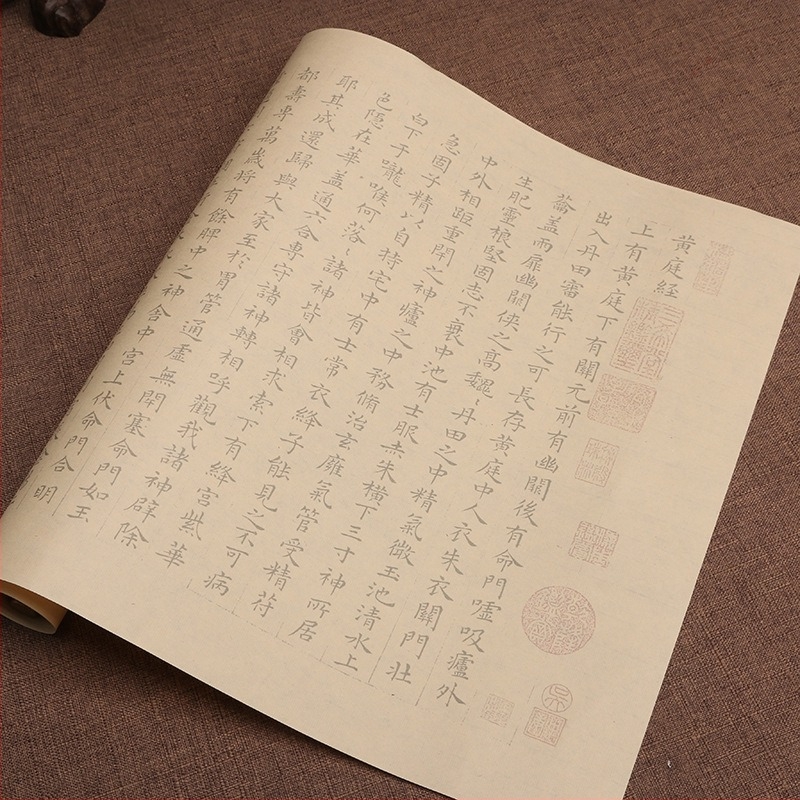 黄庭経
上有黄庭下有關元前有幽關後有命門噓吸廬外
出入丹田審能行之可長存黄庭中人衣朱衣關門壯
蘥盖兩扉幽關俠之高魏〻丹田之中精氣微玉池清水上
生肥靈根堅固志不衰中池有士服赤朱横下三寸神所居
中外相距重閇之神廬之中務脩治玄廱氣管受精苻
急固子精以自持宅中有士常衣絳子能見之不可病
白下于嚨喉何落〻諸神皆會相求索下有絳宮紫華
色隱在華盖通六合專守諸神轉相呼觀我諸神辟除
耶其成還歸與大家至於胃管通虛無閇塞命門如玉
都壽專萬歲將有餘脾中之神舍中宮上伏命門合明